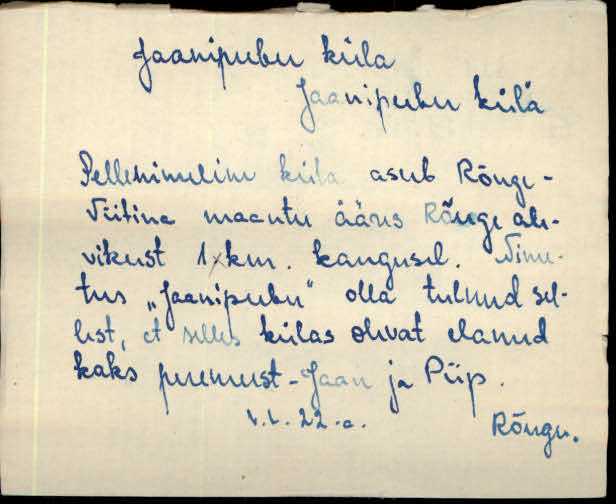 Jaanipubu küla
Jaanipubu külä
Sellenimeline küla asub Rõuge-
Viitina maantee ääres Rõuge ale-
vikust 1 km. kaugusel. Nime-
tus „Jaanipubu" olla tulnud sel-
lest, et selles külas olevat elanud
kaks peremeest - Jaan ja Piip.
22.a.
Rõuge.